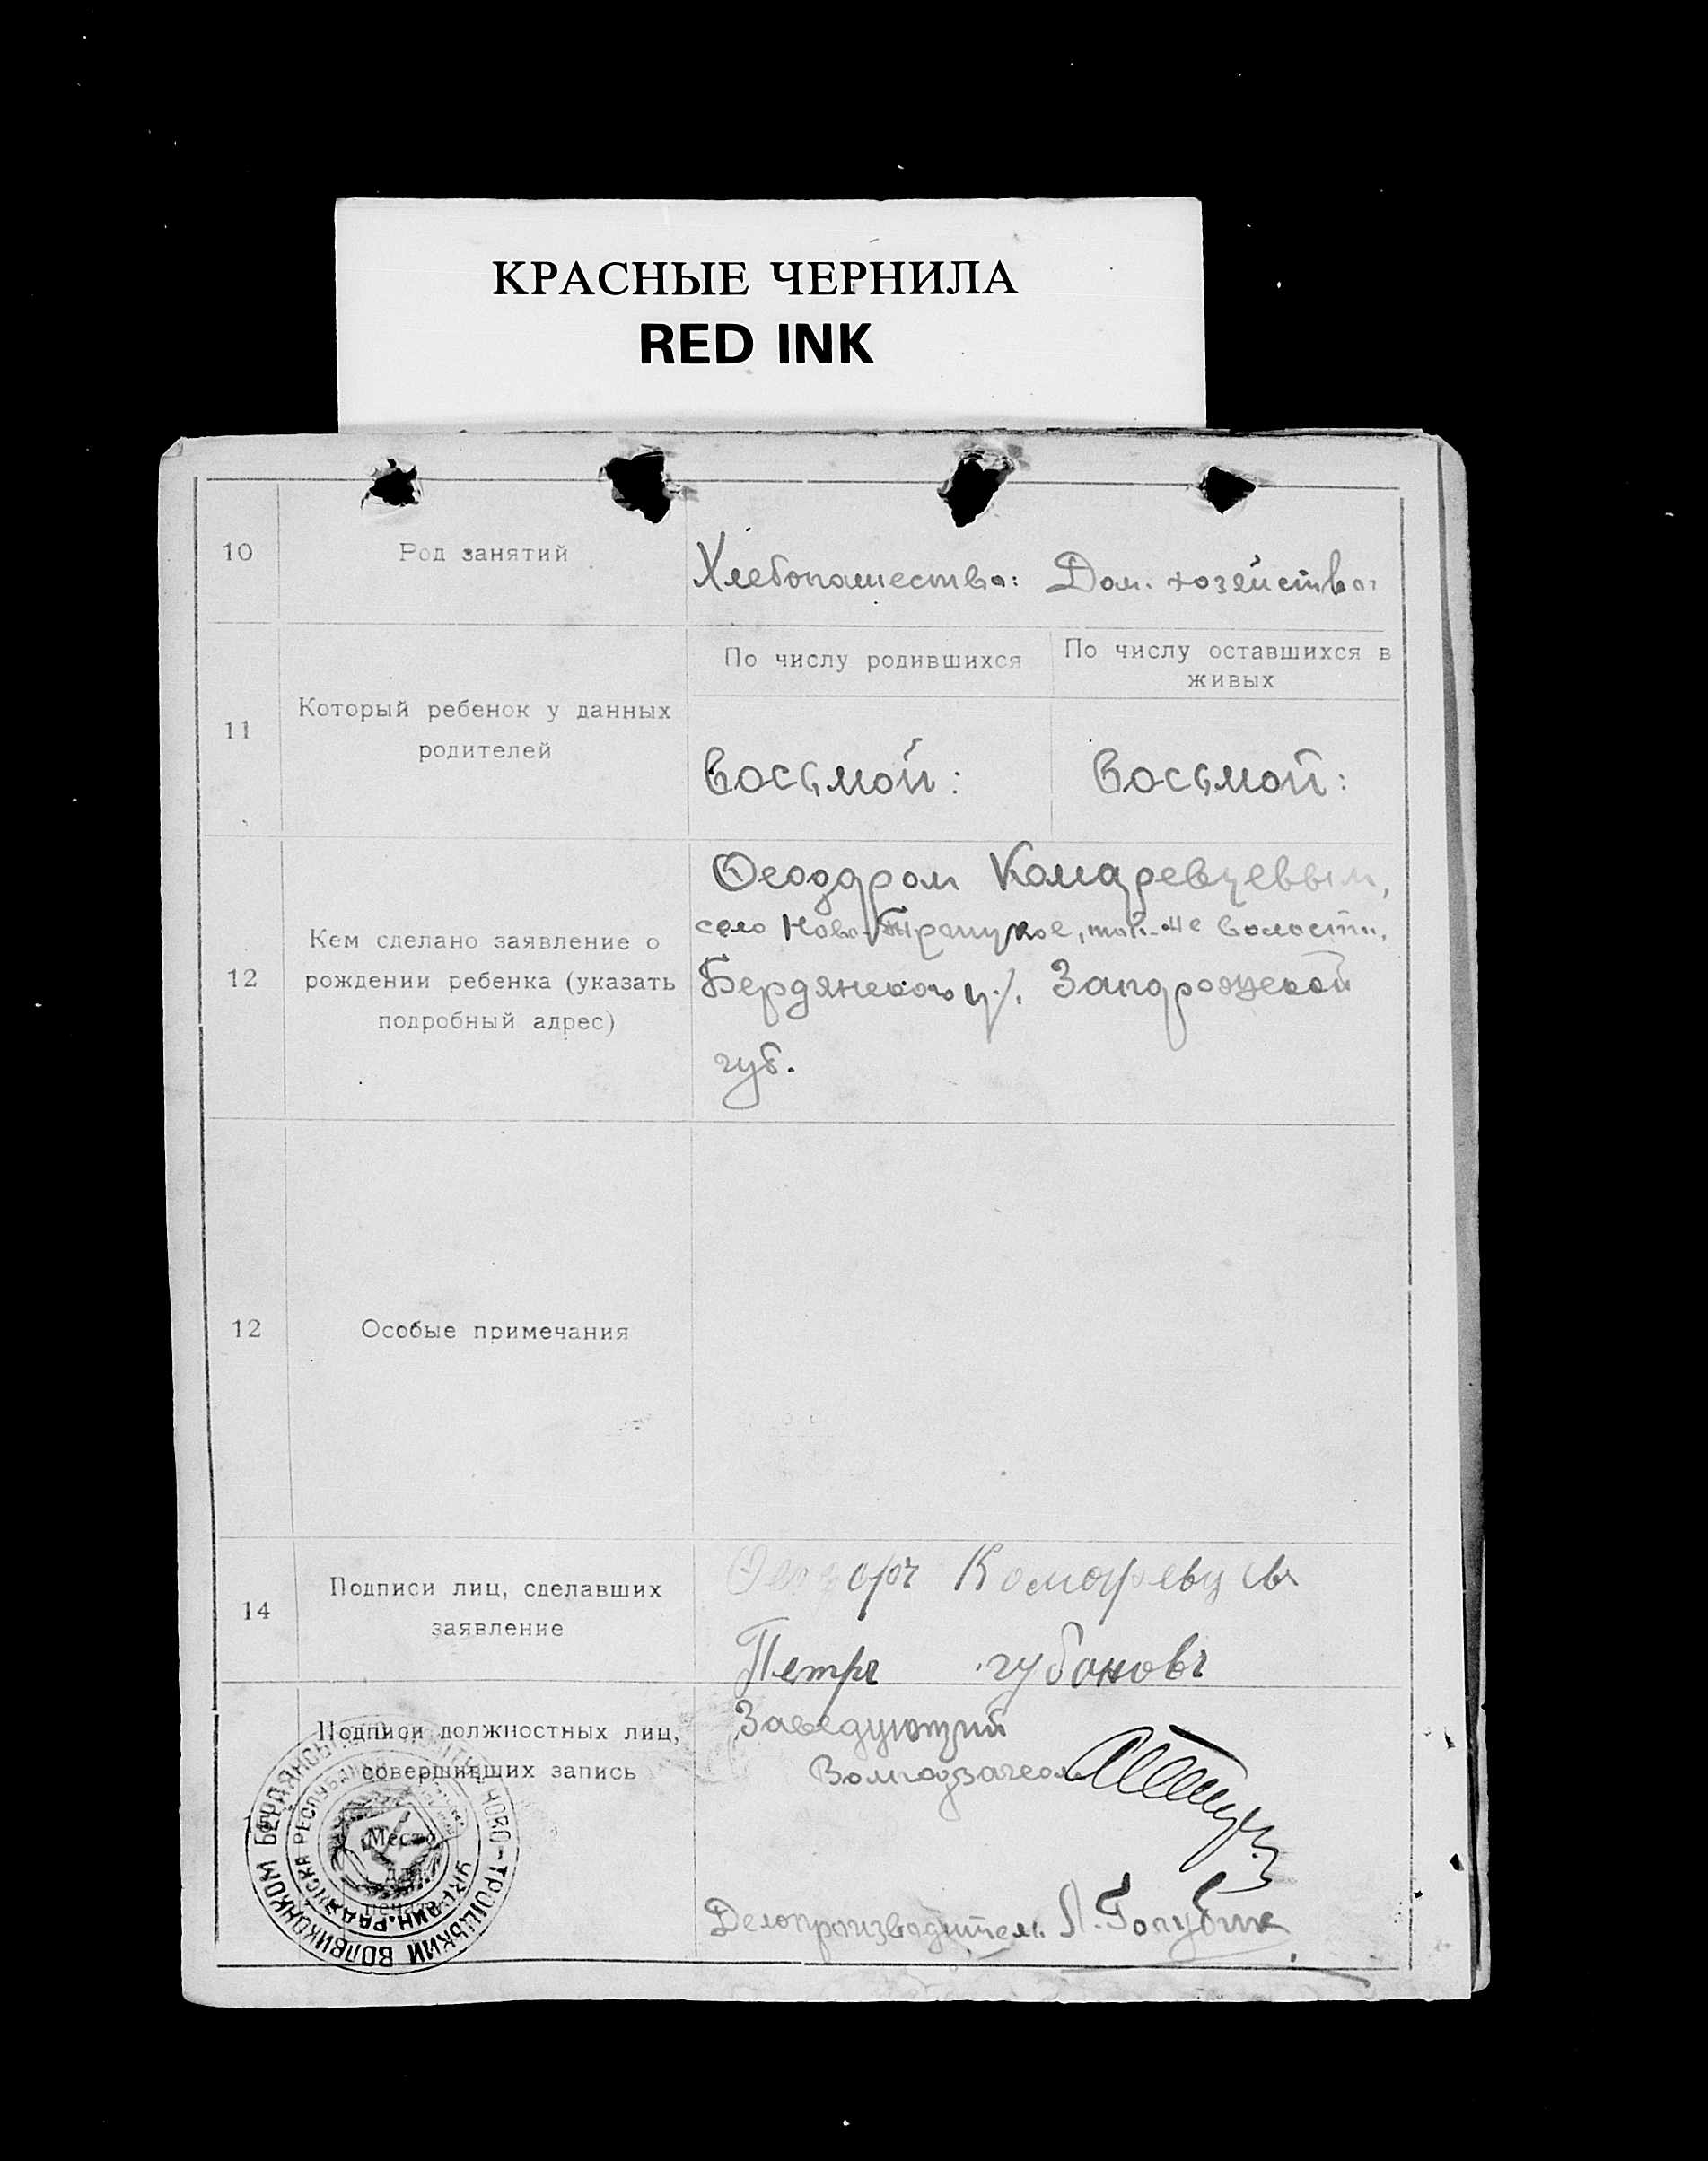 КРАСНЫЕ ЧЕРНИЛА
RED INK
10
Род занятий
Хлебопашество: Дом. хозяйство:
11
Который ребенок у данных
родителей
По числу родившихся
По числу оставшихся в
живых
Восьмой:
Восьмой:
12
Кем сделано заявление о
рождении ребенка (указать
подробный адрес)
Феодором Комаревцевым,
село Ново-Троицкое, той-же волости,
Бердянского у. Запорожской
губ.
12
Особые примечания
14
Подписи лиц, сделавших
заявление
Феодоръ Комаревцевъ
Петръ Губановъ
Подписи должностных лиц,
совершивших запись
Заведующий
Делопроизводитель Л. Голубик
Место
для
печати
НОВО-ТРОЇЦЬКИЙ ВОЛВИКОНКОМ
УКРАЇН. РАДЯНСЬКА